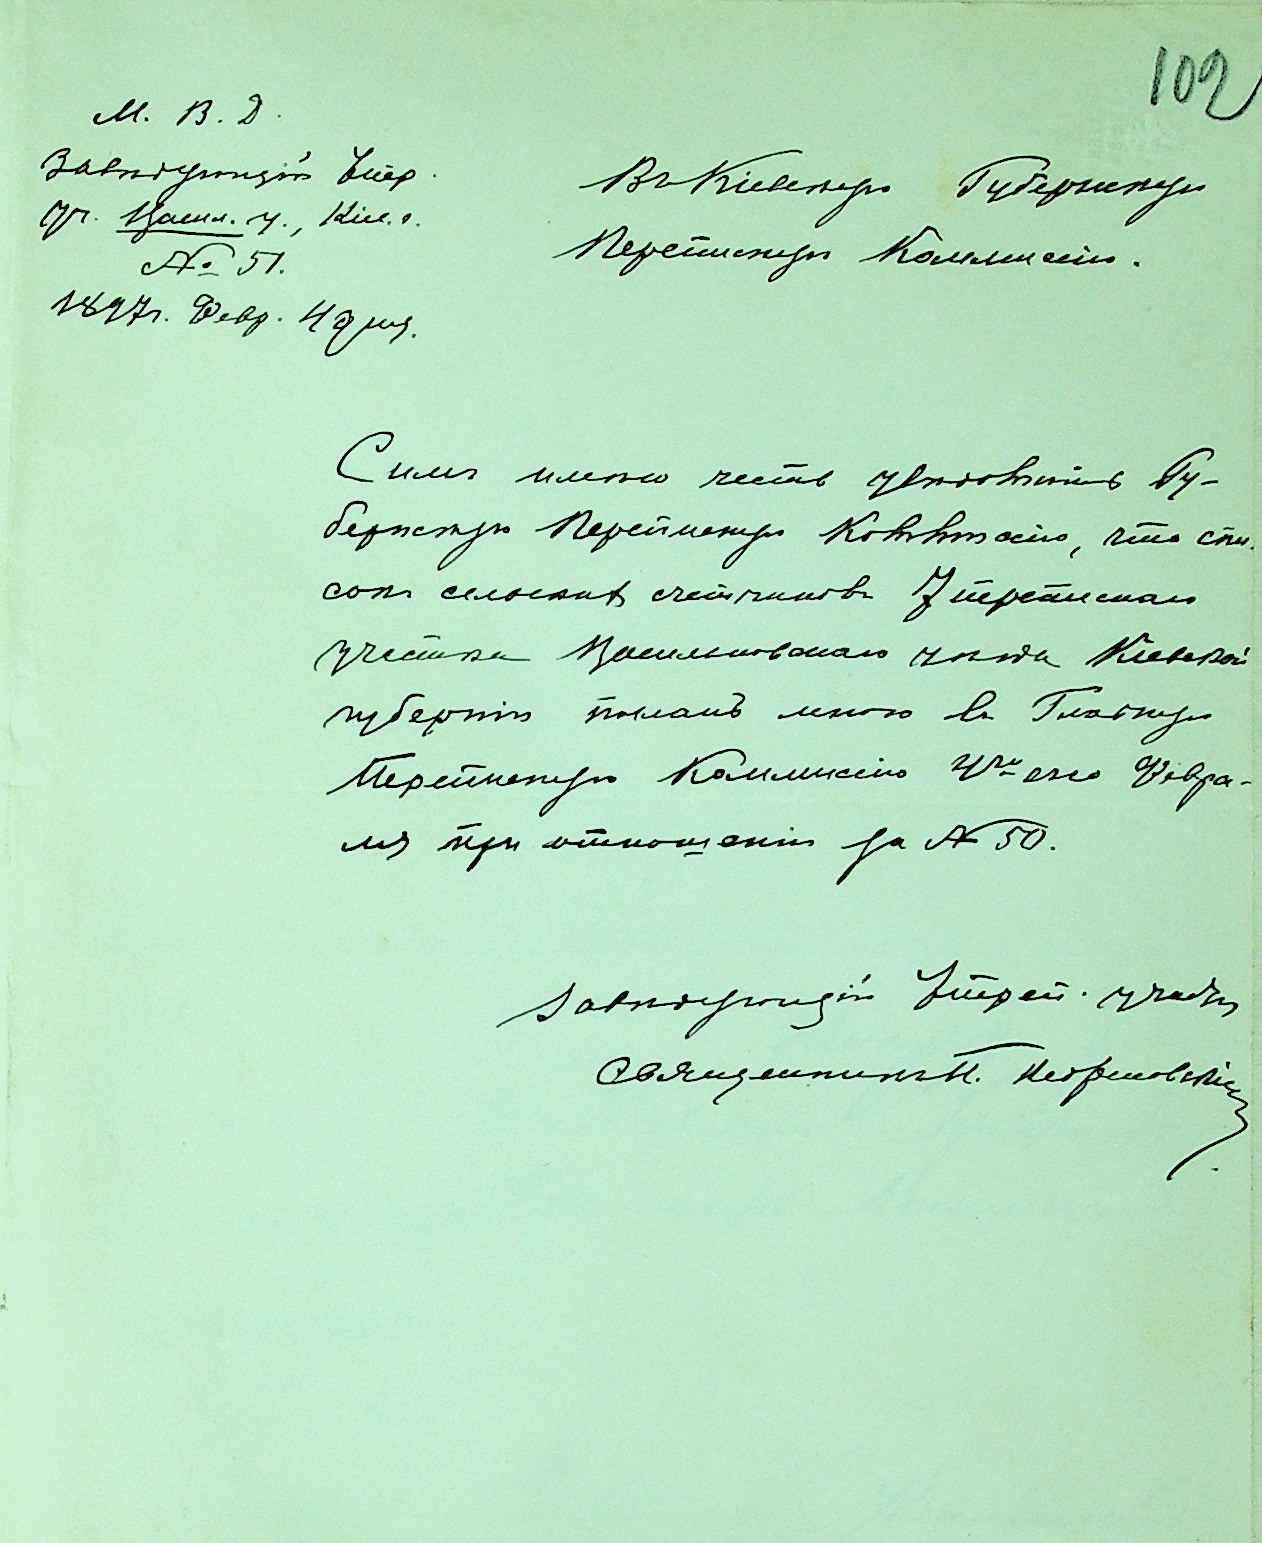 102
М. В. Д.
Завѣдующій 7 пер.
уч. Васил. у., Кіев. г.
№ 51.
1897 г. Февр. 4 дня.
Въ Кіевскую Губернскую
Переписную Коммисію.
Симъ имѣю честь увѣдомить Гу-
бернскую Переписную Коммисію, что спи-
сокъ сельскихъ счетчиковъ 7 переписнаго
участка Васильковскаго уѣзда Кіевской
губерніи посланъ мною въ Главную
Переписную Коммисію 4го сего Февра-
ля при отношеніи за № 50.
Завѣдующій 7 переп. участк.
Священникъ П.